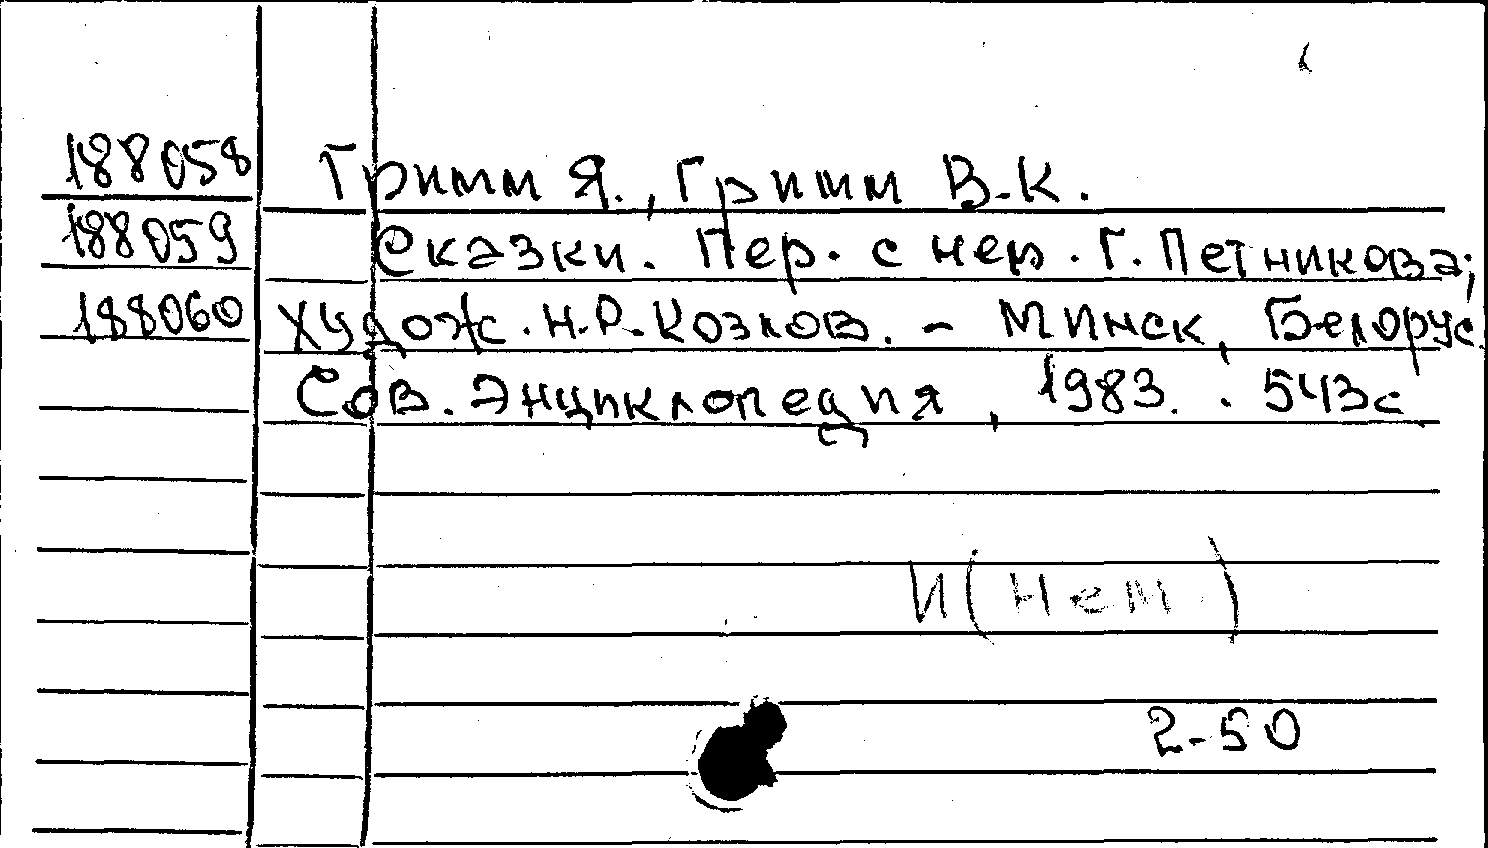 188058 Гримм Я., Гримм В.-К.
188059 Сказки. Пер. с нем. Г. Петникова;
188060 Худож. Н.Р. Козлов. - Минск, Белорус.
Сов. Энциклопедия, 1983. . 543с
И (нем)
2-50